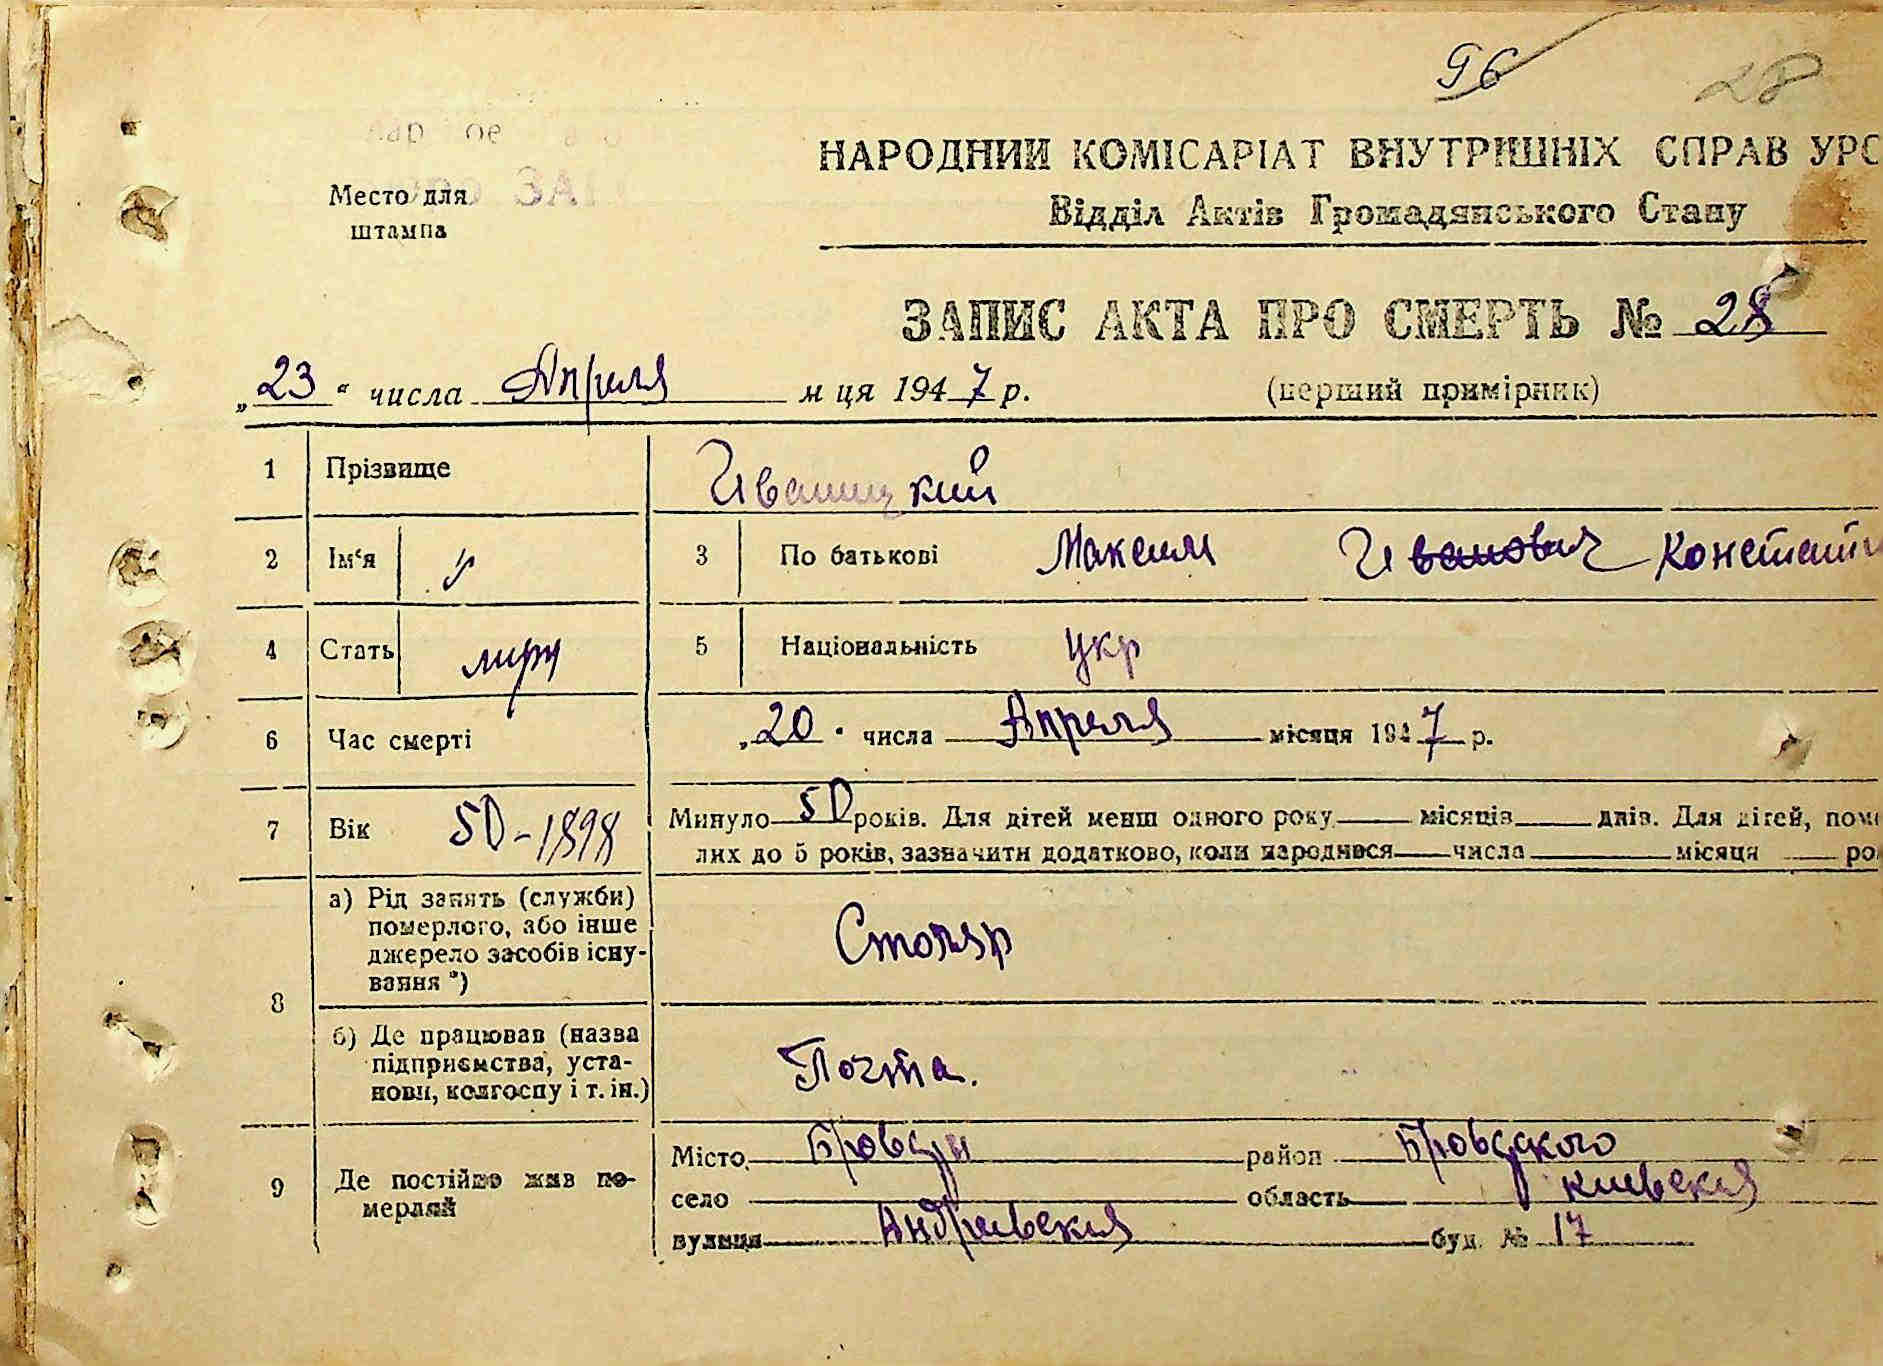 96 28
НАРОДНИЙ КОМІСАРІАТ ВНУТРІШНІХ СПРАВ УРС
Место для штампа
Відділ Актів Громадянського Стану
ЗАПИС АКТА ПРО СМЕРТЬ № 28
„23“ числа Апреля м ця 1947 р. (перший примірник)
1 Прізвище Иваницкий
2 Ім‘я 3 По батькові Максим Иванович Констант
4 Стать муж 5 Національність укр
6 Час смерті „20“ числа Апреля місяця 1947 р.
7 Вік 50-1898 Минуло 50 років. Для дітей менш одного року місяців днів. Для дітей, поме
лих до 5 років, зазначити додатково, коли народився числа місяця ро
8 а) Рід занять (служби)
померлого, або інше
джерело засобів існу-
вання *)
Столяр
б) Де працював (назва
підприємства, уста-
нови, колгоспу і т. ін.)
Почта.
9 Де постійно жив по-
мерлий
Місто Бровары район Броварского
село область Киевская
вулиця Андреевская буд. № 17